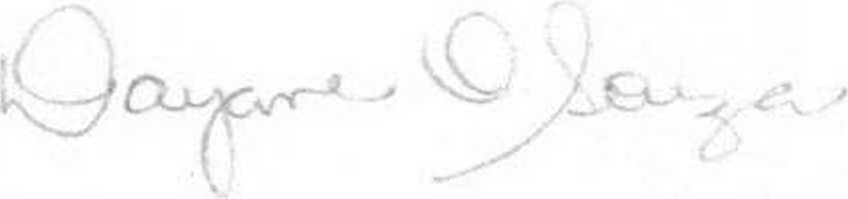 Dayane O Souza